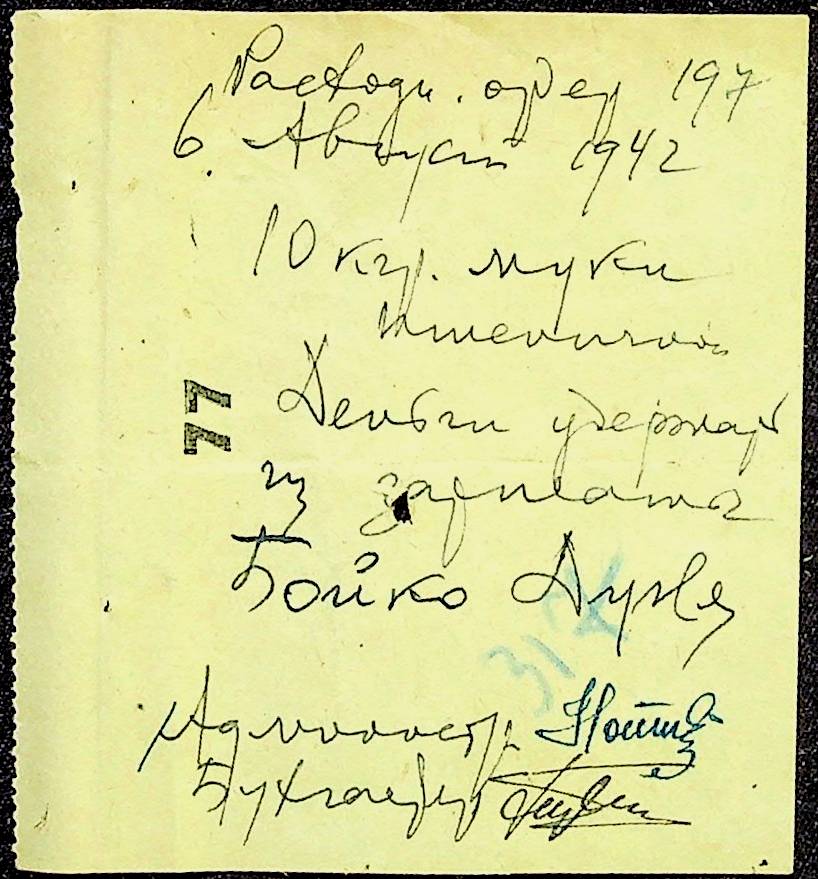 Расходн. ордер 197
6 Август 1942
10 кгр. муки
пшеничной
Деньги удержать
из зарплаты
77
Бойко
317
Администр.
Бухгалтер